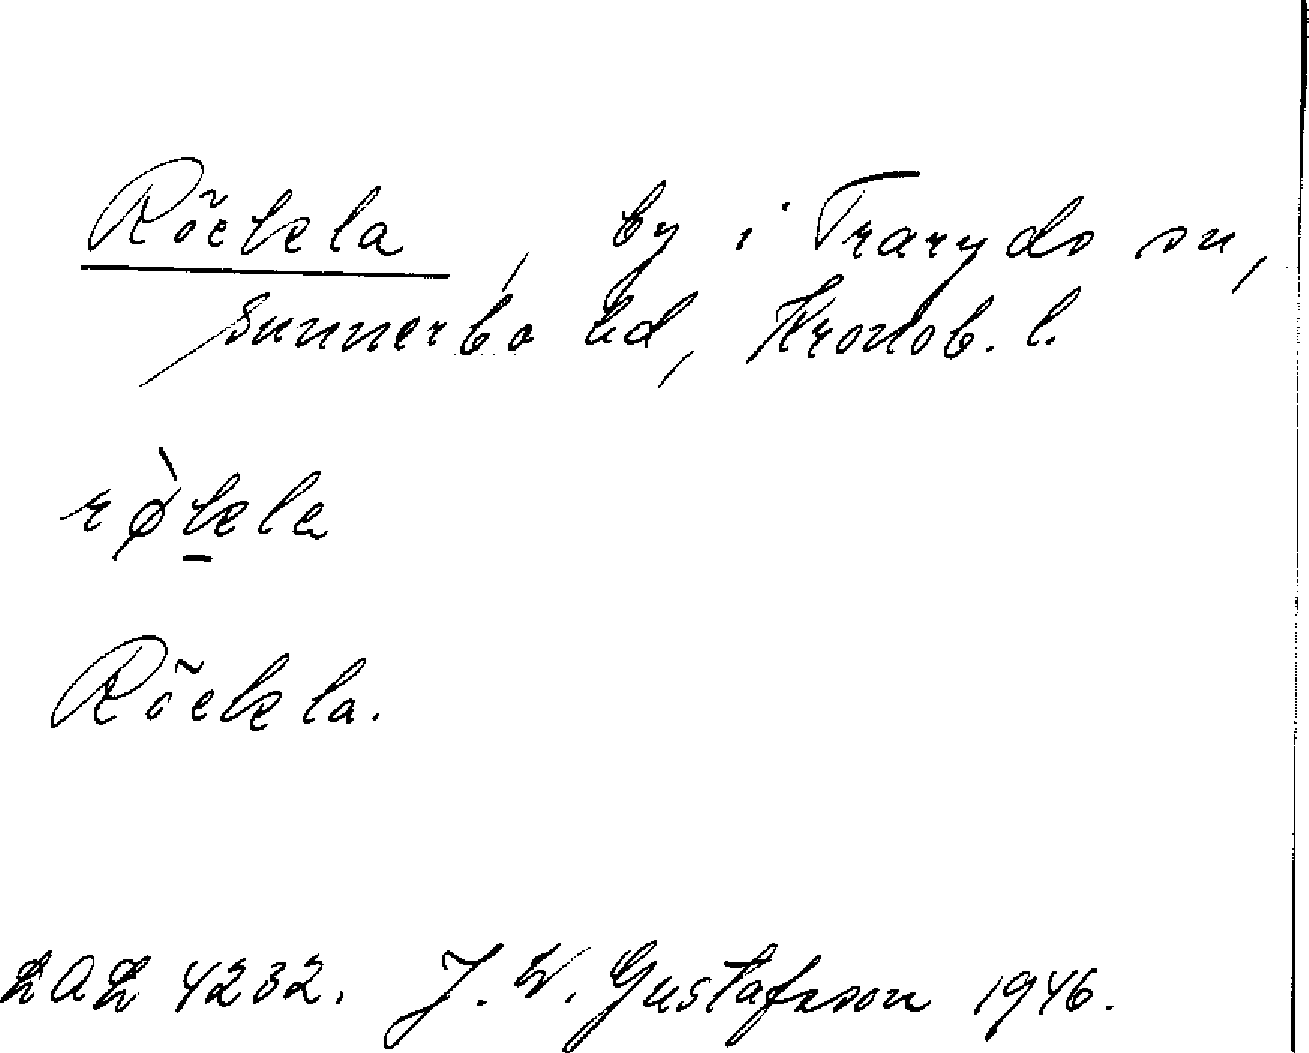 Röckla, by i Traryds sn,
Sunnerbo hd, Kronob. l.
rø̀kla
Röckla.
LAL 4232. J. W. Gustafsson 1946.